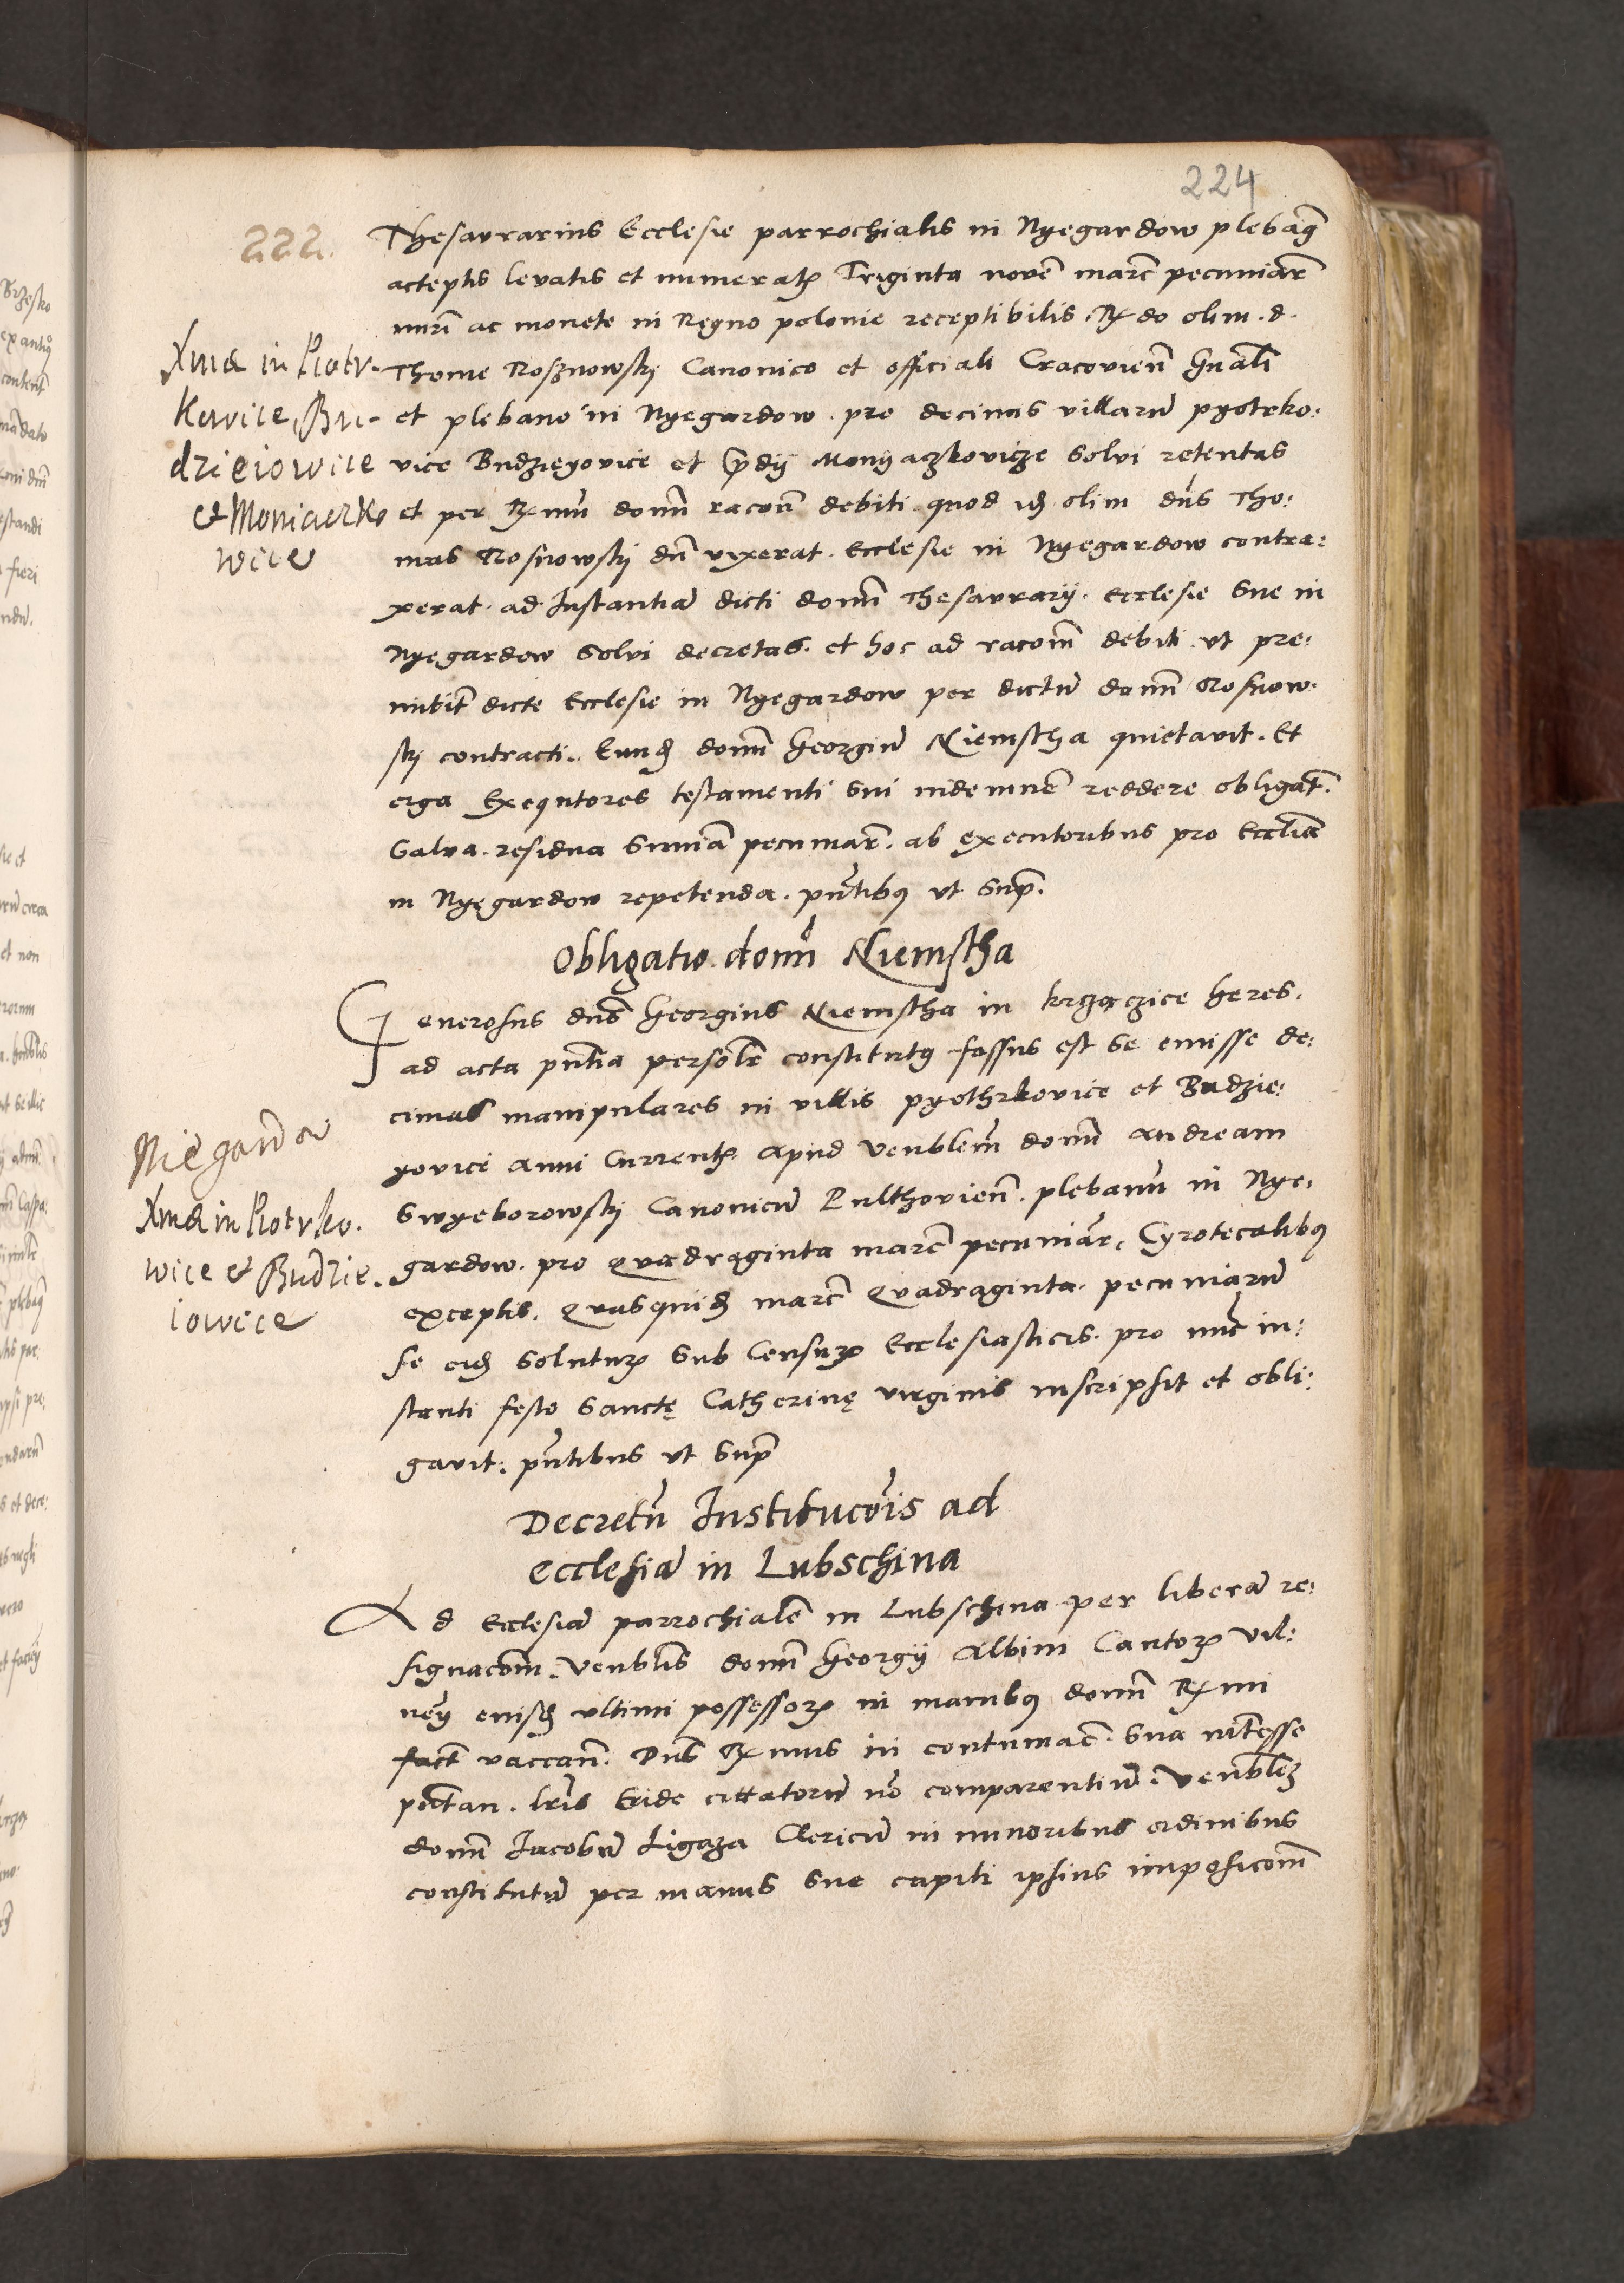 224
222.
Thesaurarius Ecclesie parrochialis in Nyegardow plebanꝫ
acceptis levatis et numeratꝫ Triginta novē marc̄ pecuniar̄
nuri ac monete in Regno polonie receptibilis. Rꝫdo olim. d.
Thome Roßnowskj Canonico et officiali Cracovien̄ Gn̄ali
et plebano in Nyegardow. pro decimis villarū pyotrko:
vice Budzięyovice et p̄dij Monyaczkovicze solvi retentas
et per Rꝫmū domn̄ racon̄ debiti quod iꝫ olim dn̄s Tho:
mas Rosnowskj dū vixerat. Ecclesie in Nyegardow contra:
xerat. ad Instantiā dicti domn̄ Thesaurarij. Ecclesie sue in
Nyegardow solvi decretas. et hoc ad racom̄ debiti. ut pre:
mittit̄ dicte Ecclesie in Nyegardow per dictū domn̄ Rosnow:
skj contracti. Eundꝫ domn̄ Georgiū Niemstha quietavit. Et
erga Exequtores testamenti sui indemnē reddere obligat̄.
Salva. residua summā pecuniar̄. ab executoribus pro Eccliā
in Nyegardow repetenda. pn̄tibꝰ ut sup̄.
Xma in Piotr-
kowice, Bu-
dzieiowice
et Moniaczko
wice
Obligatio domī Niemstha
Generosus dn̄s Georgius Niemstha in krzączice heres.
ad acta pn̄tia persolr̄ constitutꝰ fassus est se emisse de:
cimas manipulares in villis pyothrkovice et Budzie:
yovice anni Currentꝫ. apud venblem̄ domn̄ andream
Swyeborowskj Canonicū Pulthovien̄. plebanū in Nye:
gardow. pro Quadraginta marc̄ pecuniar̄, Cyrotecalibꝰ
exceptis. Quasquidꝫ marc̄ Quadraginta. pecuniarū
se eidꝫ solutuꝫ sub Censuꝫ Ecclesiasticis. pro nūc in:
stanti festo Sanctę Catherinę virginis inscripsit et obli:
gavit. pn̄tibus ut sup̄
Niegardow
Xma in Piotrko.
wice et Budzie.
iowice
Decretū Institucōis ad
ecclesiā in Lubschina
Ad Ecclesiā parrochialē in Lubschina per liberā re:
signacom̄. venblis domn̄ Georgij Albini Cantoꝫ vil:
nēn eiusꝫ ultimi possessoꝫ in manibꝰ domn̄ Rꝫmi
fact̄ vaccan̄. Dn̄s Rꝫmus in contumac̄. sua nt̄esse
pūtan. lr̄is citatorū nō comparentiū. venblēꝫ
domn̄ Jacobū Ligaza Clericū in minoribus ordinibus
constitutū per manus sue capiti ipsius imposicom̄